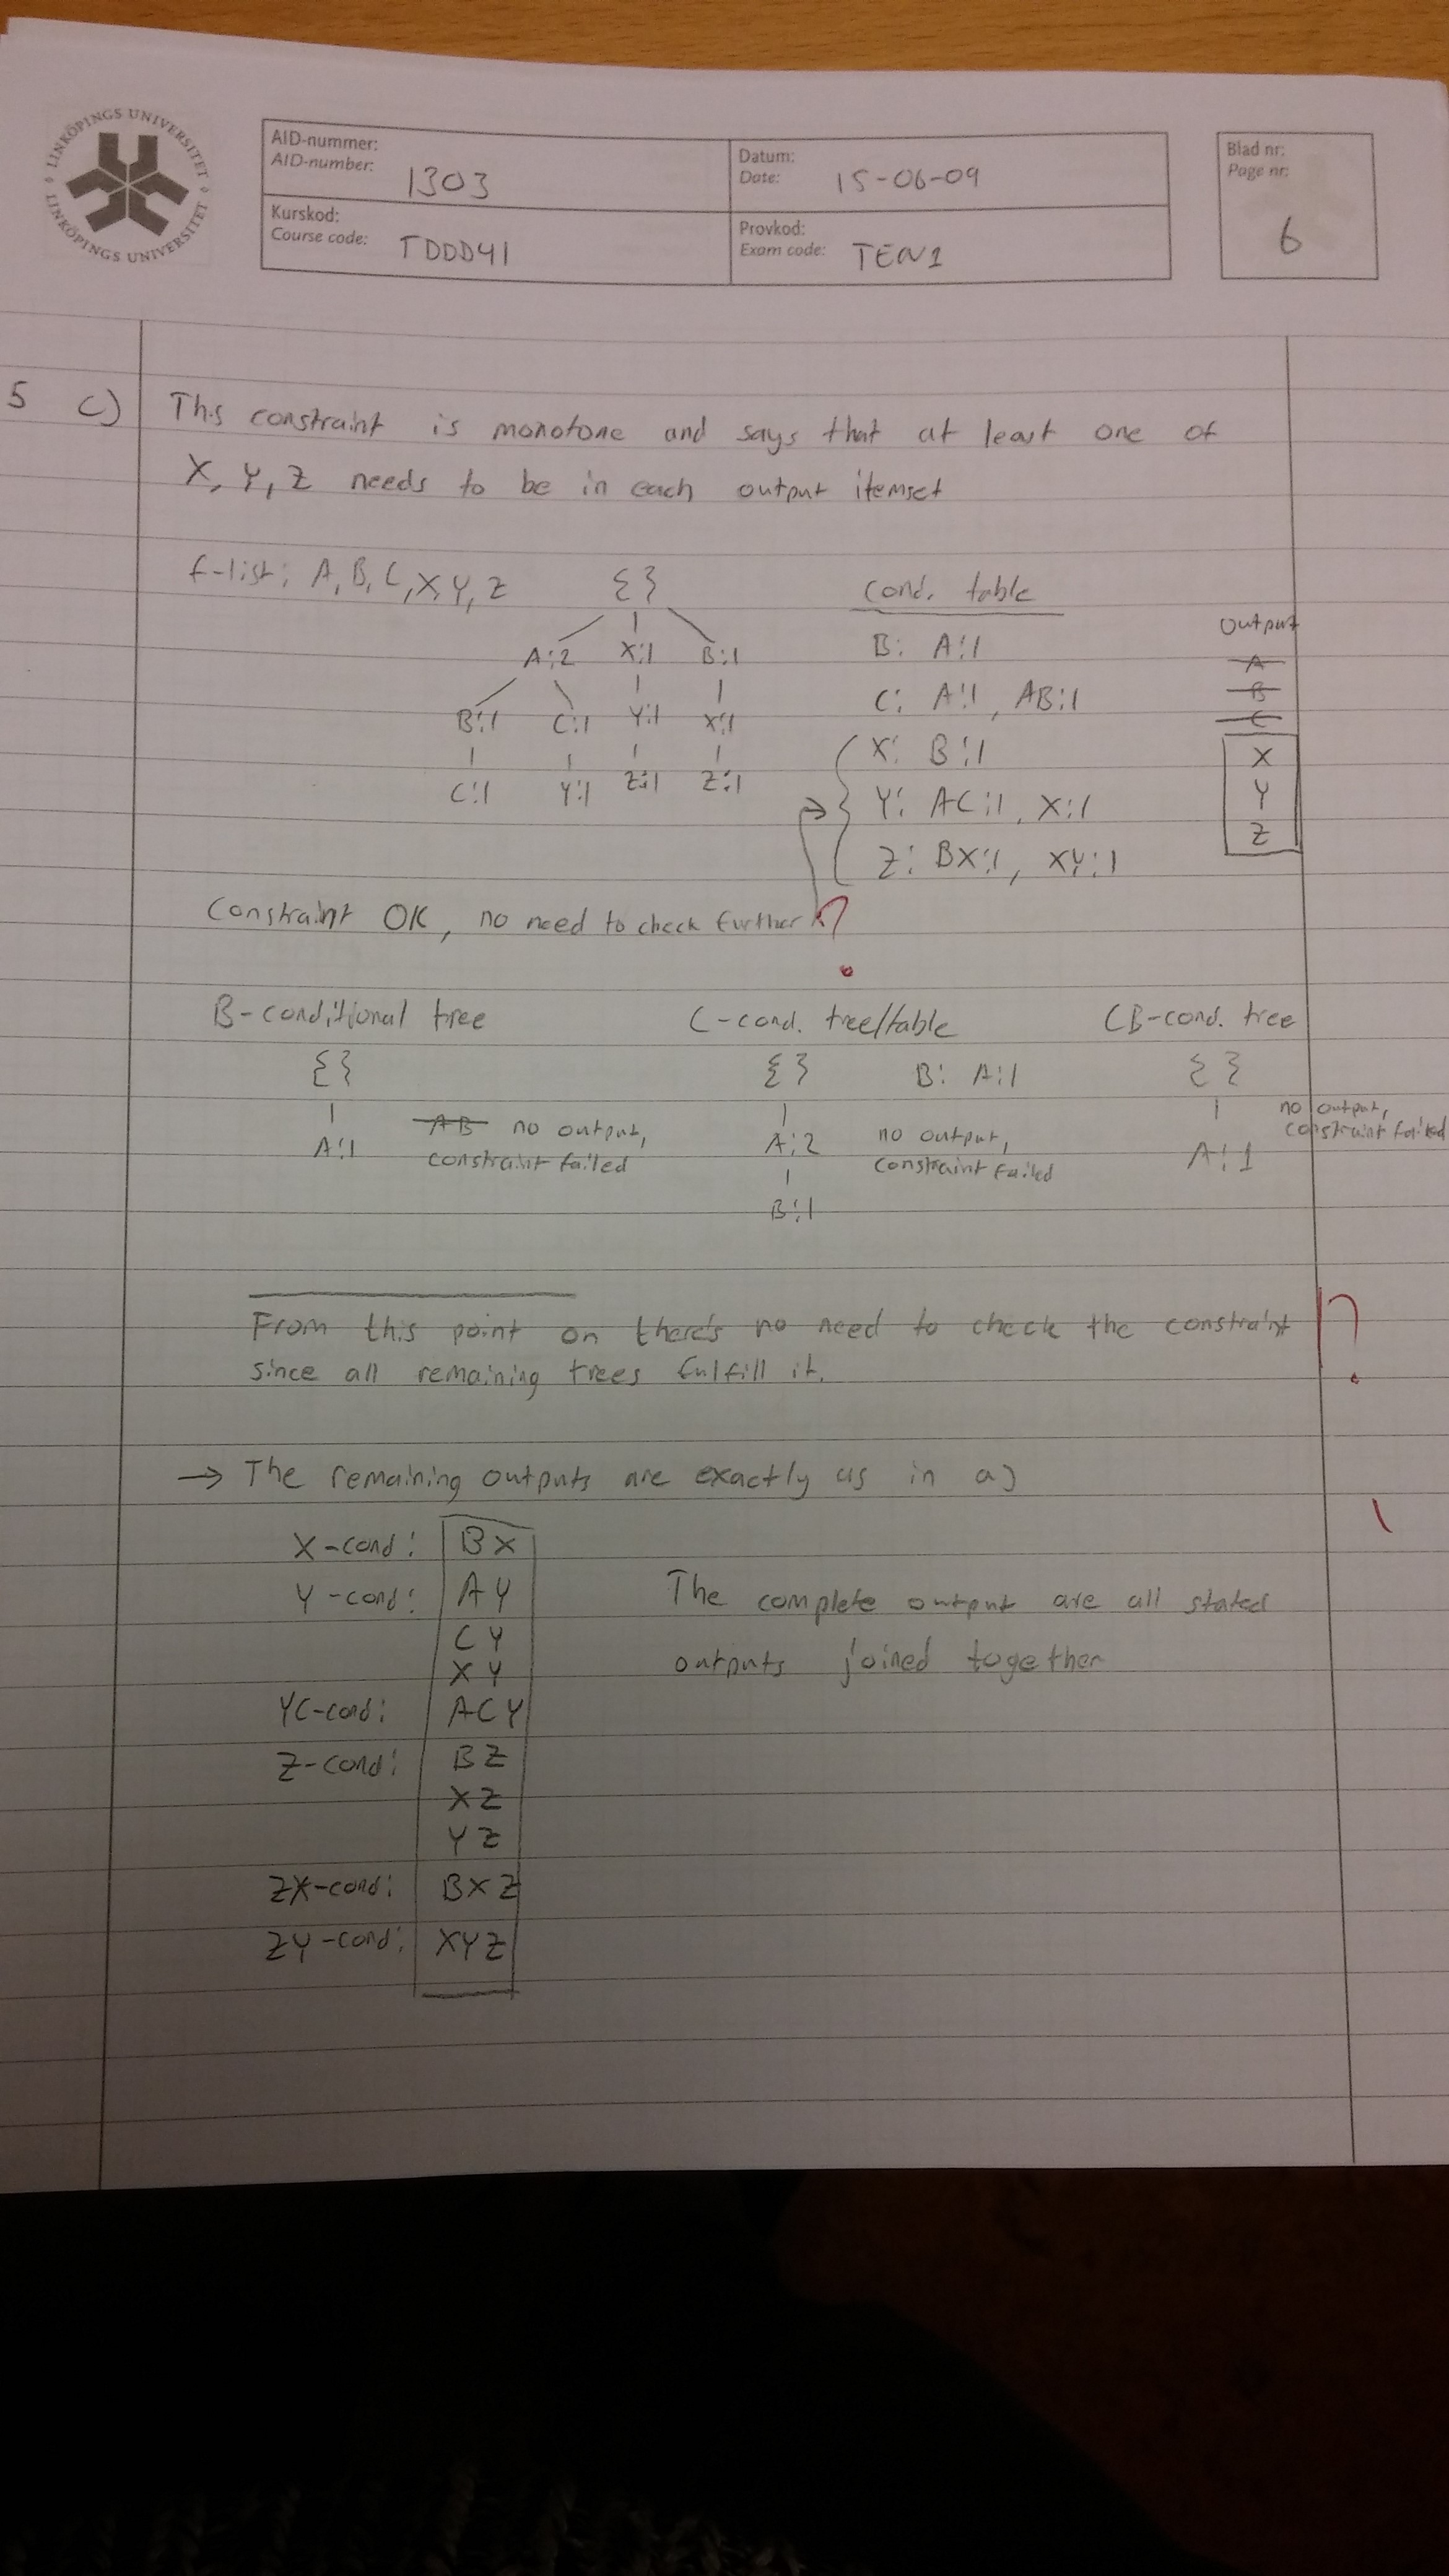 LINKÖPINGS UNIVERSITET
LINKÖPINGS UNIVERSITET
AID-nummer:
AID-number: 1303
Datum:
Date: 15-06-09
Blad nr:
Page nr:
6
Kurskod:
Course code: TDDD41
Provkod:
Exam code: TEN1
5 c) This constraint is monotone and says that at least one of
X, Y, Z needs to be in each output itemset
f-list: A, B, C, X, Y, Z
{}
A:2 X:1 B:1
B:1 C:1 Y:1 X:1
C:1 Y:1 Z:1 Z:1
cond. table
B: A:1
C: A:1, AB:1
X: B:1
Y: AC:1, X:1
Z: BX:1, XY:1
Output
A
B
C
X
Y
Z
Constraint OK, no need to check further ?
B-conditional tree
{}
A:1
AB no output,
constraint failed
C-cond. tree/table
{} B: A:1
A:2
B:1
no output,
constraint failed
CB-cond. tree
{}
A:1
no output,
constraint failed
From this point on there's no need to check the constraint ?
since all remaining trees fulfill it.
→ The remaining outputs are exactly as in a)
X-cond: BX
Y-cond: AY
CY
XY
YC-cond: ACY
Z-cond: BZ
XZ
YZ
ZX-cond: BXZ
ZY-cond: XYZ
The complete output are all stated
outputs joined together